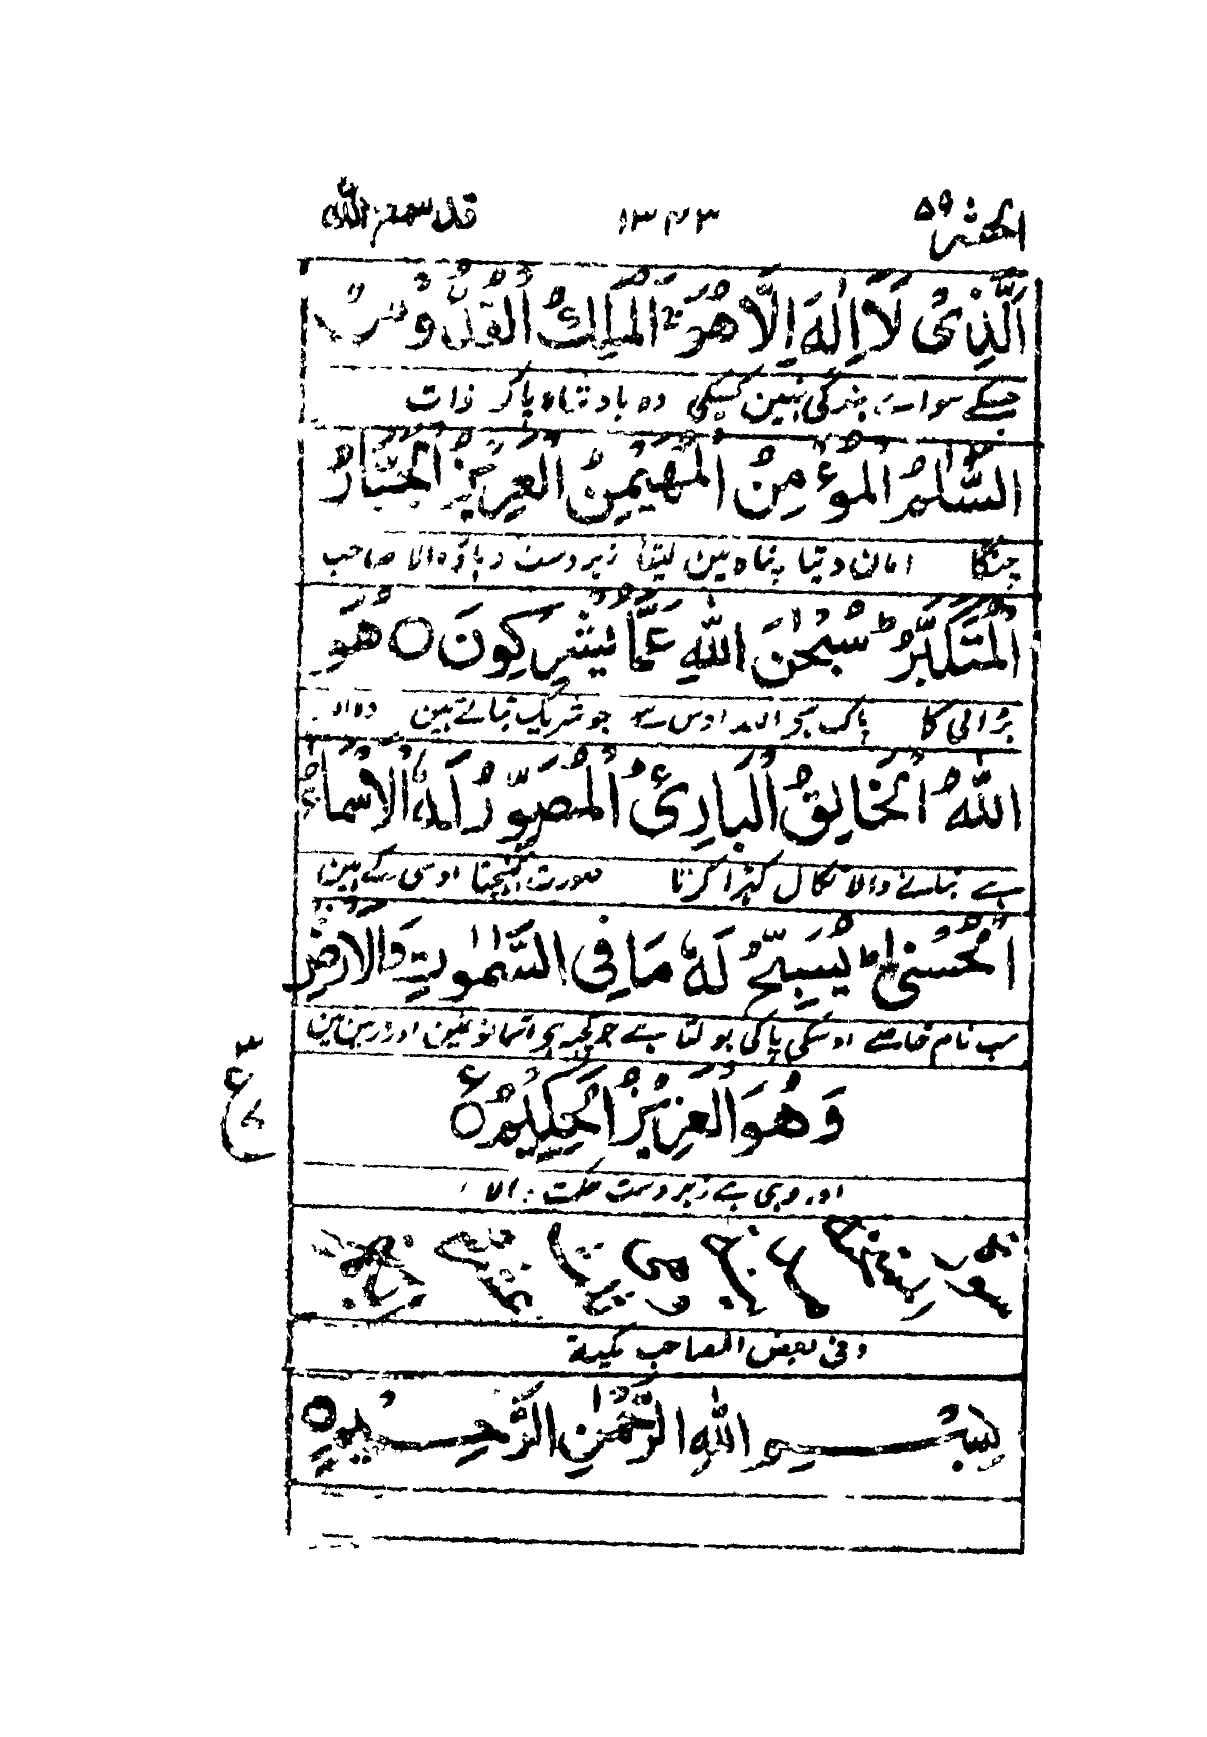 الحشر ٥٩ ١٣٤٣ قد سمع الله
الَّذِىْ لَآ اِلٰهَ اِلَّا هُوَ ۚ اَلْمَلِكُ الْقُدُّوْسُ
جسکے سوا بندگی نہین کسیکی وہ بادشاہ پاک ذات
السَّلٰمُ الْمُؤْمِنُ الْمُهَيْمِنُ الْعَزِيْزُ الْجَبَّارُ
چنگا امان دیتا پناہ مین لیتا زبردست دباؤ والا صاحب
الْمُتَكَبِّرُ ؕ سُبْحٰنَ اللّٰهِ عَمَّا يُشْرِكُوْنَ ○ هُوَ
بڑائی کا پاک ہی اللہ اوس سے جو شریک بتاتے ہین وہ
اللّٰهُ الْخَالِقُ الْبَارِئُ الْمُصَوِّرُ لَهُ الْاَسْمَآءُ
ہے بنانے والا نکال کھڑا کرتا صورت کھینچتا اوسی کے ہین
الْحُسْنٰى ؕ يُسَبِّحُ لَهٗ مَا فِى السَّمٰوٰتِ وَالْاَرْضِ
سب نام خاصے اوسکی پاکی بولتا ہے جو کچھ ہی آسمانونمین اور زمین مین
وَهُوَ الْعَزِيْزُ الْحَكِيْمُ ○
ع ٣
اور وہی ہے زبردست حکمت والا
سورة
وفی بعض المصاحب مکیة
بِسْمِ اللّٰهِ الرَّحْمٰنِ الرَّحِيْمِ ○